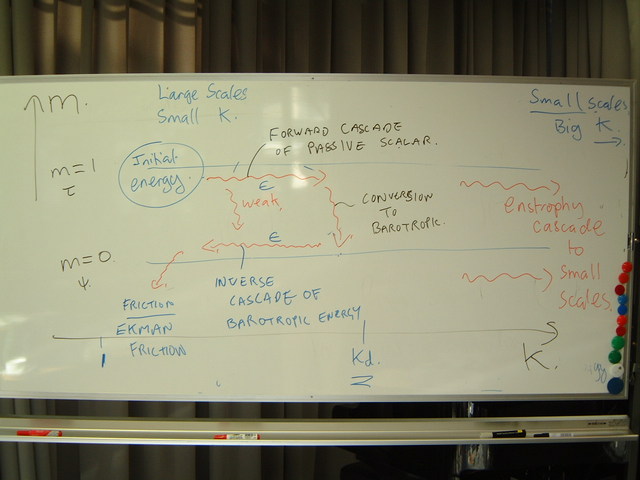 m.
Large Scales
Small K.
Small scales
Big K.
m = 1
τ
Initial
energy.
FORWARD CASCADE
OF PASSIVE SCALAR.
ε
weak.
CONVERSION
TO
BAROTROPIC.
enstrophy
cascade
to
small
scales.
m = 0.
ψ
ε
INVERSE
CASCADE OF
BAROTROPIC ENERGY
FRICTION
EKMAN
FRICTION
Kd.
K.